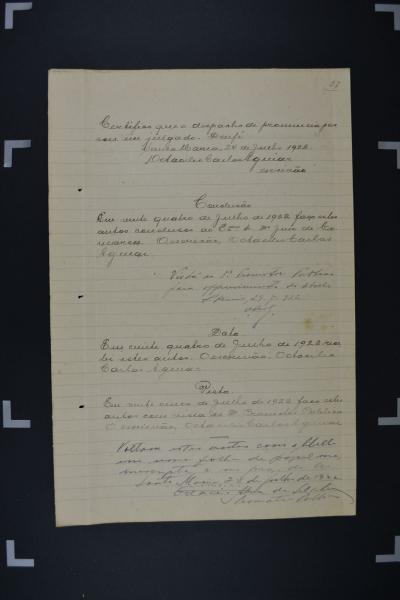 27
Certifico que o despacho de pronuncia pas
sou em julgado. Doufé.
Santa Maria, 24 de Julho 1922.
Octacilio Carlos Aguiar
escrivão
Conclusão
Em vinte quatro de Julho de 1922 faço estes
autos conclusos ao Ex. Snr. Dr. Juiz de Co
marca. O escrivão, Octacilio Carlos
Aguiar
Vista ao Dr. Promotor Publico
para offerecimento do libello
S. Maria, 24-7-922
Data
Em vinte quatro de Julho de 1922 rece
bi estes autos. O escrivão, Octacilio
Carlos Aguiar
Vista
Em vinte cinco de Julho de 1922 faço estes
autos com vista ao Dr. Promotor Publico
O escrivão, Octacilio Carlos Aguiar
Voltam estes autos com o libello
em uma folha de papel
Santa Maria, 28 de julho de 1922
Promotor Publico